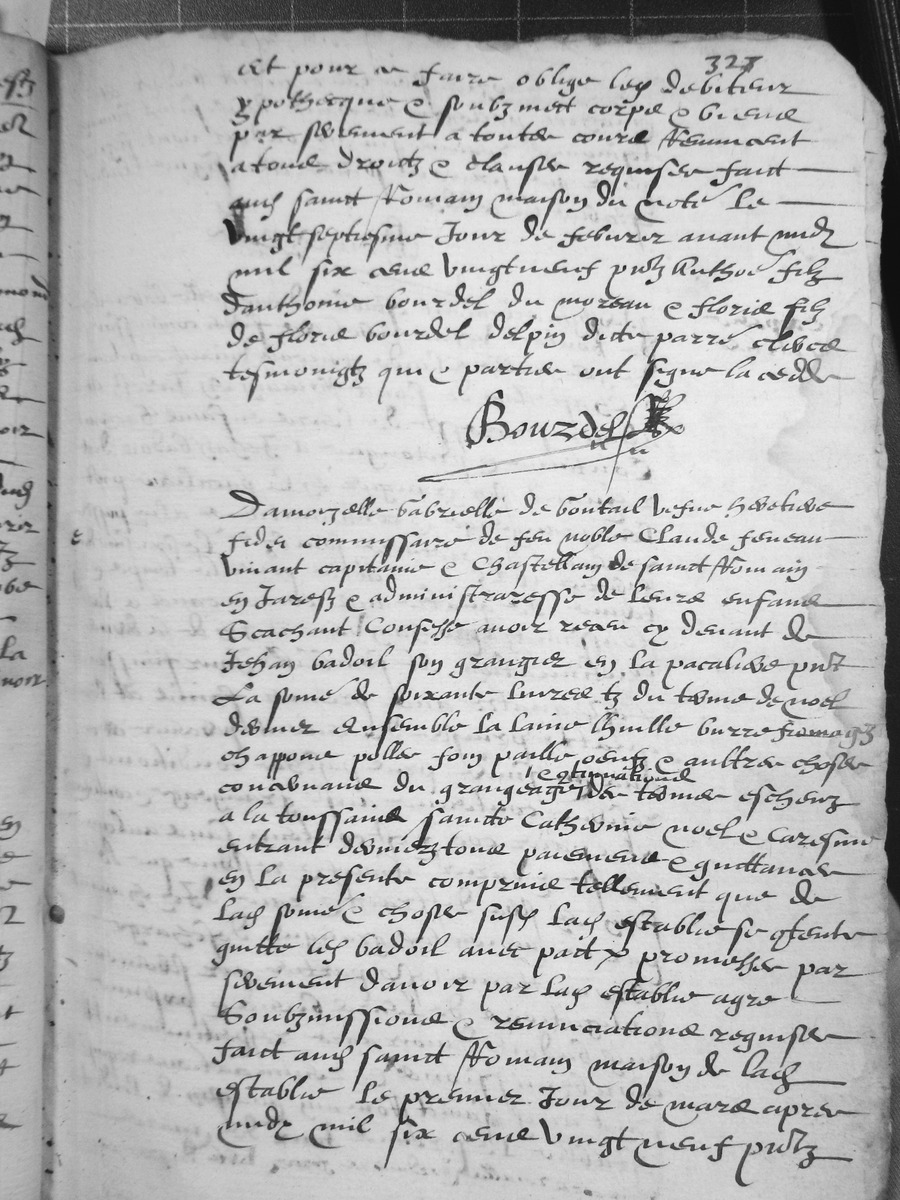 327
et pour ce faire oblige led debiteur
ypothecque & soubzmect corps & biens
par serement a toutes cours Renuncent
a tous droictz & clauses requises faict
aud sainct Romain maison du note le
Vingt septiesme Jour de febvrier avant midy
mil six cens vingt neuf pntz Anthoe filz
danthoine bourdel du moreau & floris filz
de floris bourdel delpin dicte parre clercs
tesmoingtz qui & parties ont signe la cedde
Bourdel
Damoyzelle Gabrielle de bontail vefve heretiere
fidei commissaire de feu noble Claude feneau
vivant capitaine & Chastellain de sainct Romain
en Jarestz & administraresse de leurs enfans
Scachant Confesse avoir receu cy devant de
Jehan badoil son grangier en la pacaliere pnt
La some de soixante livres tz du terme de noel
dernier Ensemble la laine lhuille burre fromaigz
chappons polles foin paille oeufz & aultres choses
concernans du grangeage & continuations des termes escheuz
a la toussainct saincte Catherine noel & Caresme
entrant derniers tous paiemens & quittances
en la presente comprins tellement que de
lad some & choses susd lad establie se contente
quitte led badoil avec pact & promesses par
serement davoir par lad establie agre
Soubzmissions & renunciations requises
faict aud sainct Romain maison de lad
establie le premier Jour de mars apres
midy mil six cens vingt neuf pntz